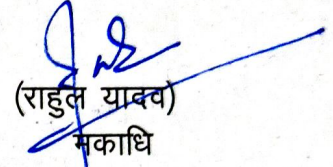 (राहुल यादव)
मकाधि